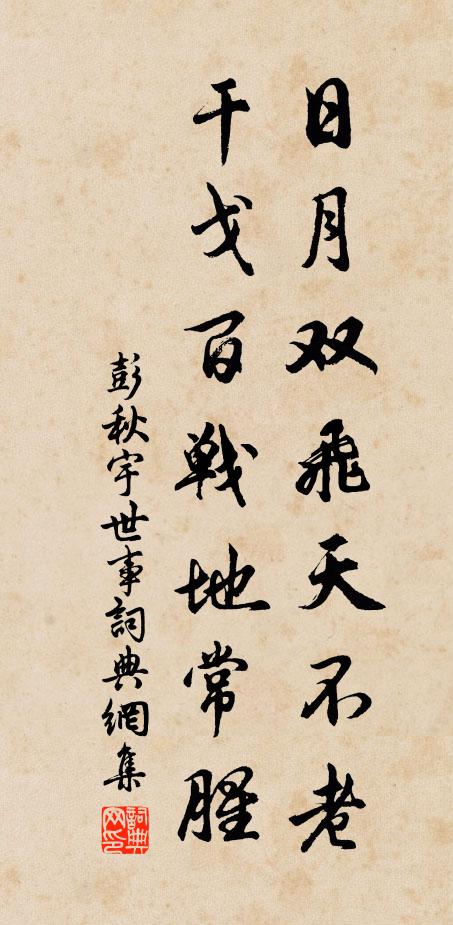 日月双飛天不老
干戈百戦地常腥
彭秋宇世事詞典網集
詞典网印